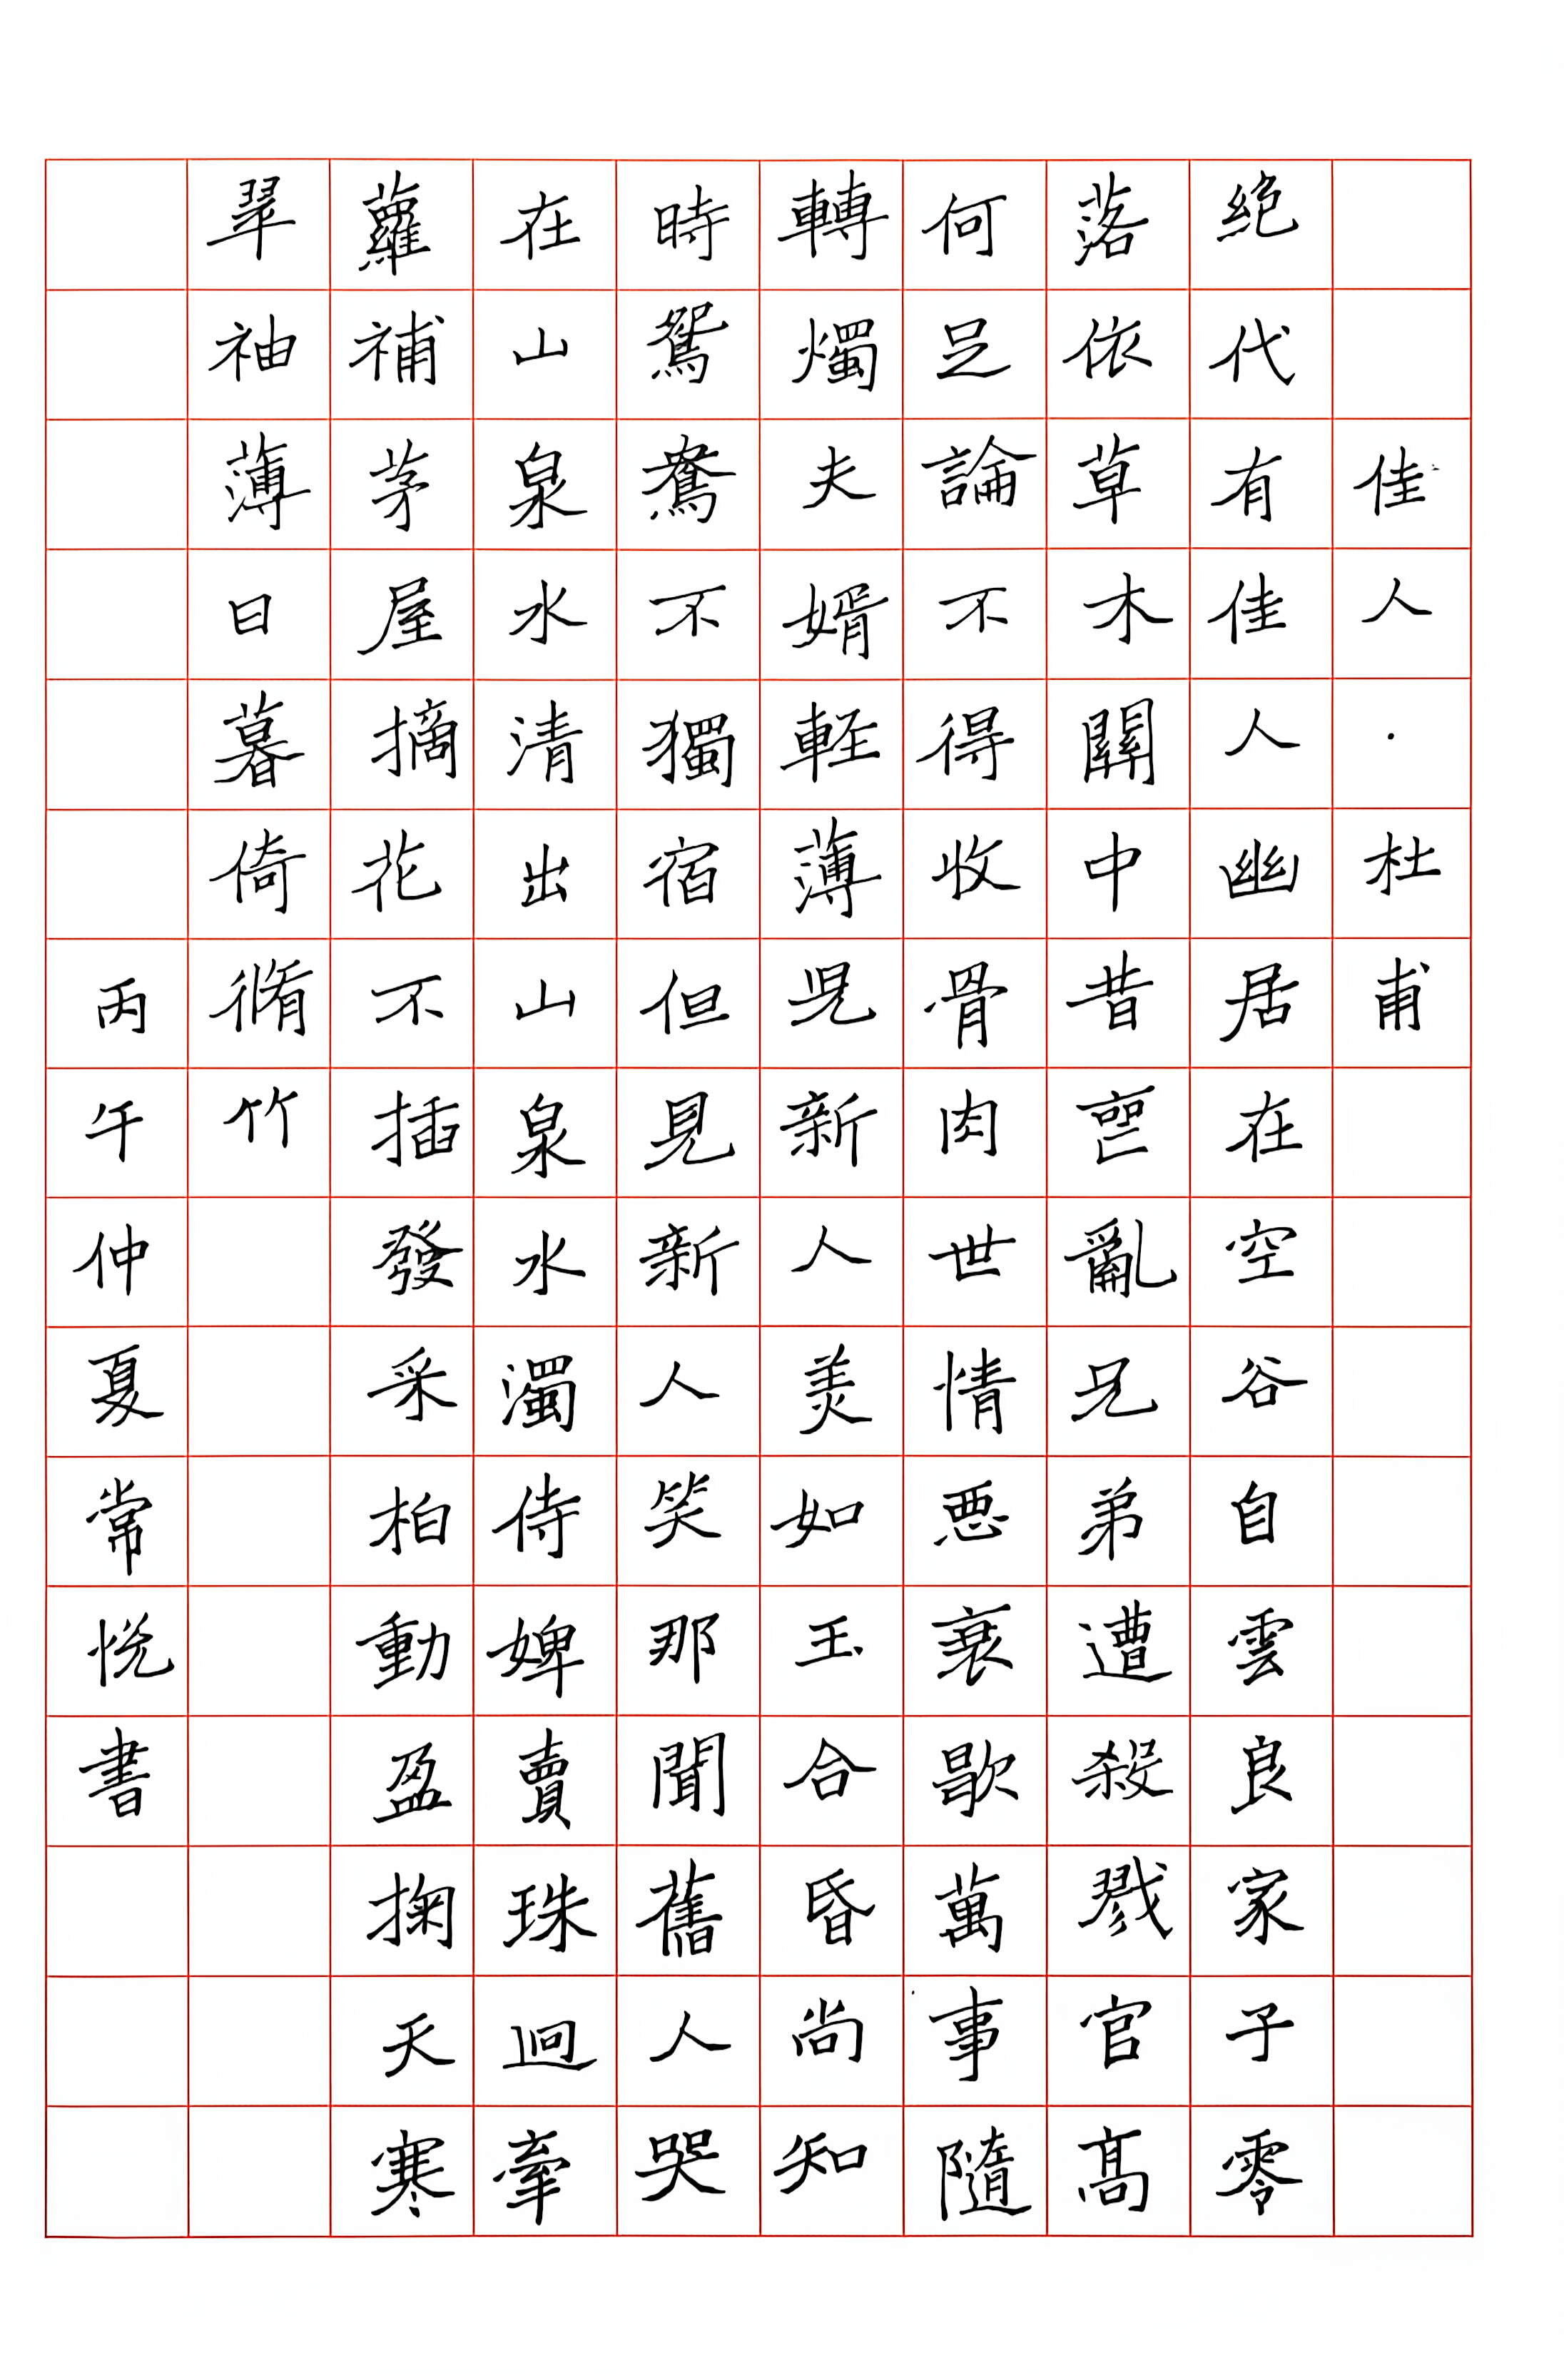 佳人·杜甫
絶代有佳人幽居在空谷自雲良家子零
落依草木關中昔喪亂兄弟遭殺戮官高
何足論不得收骨肉世情悪衰歇萬事隨
轉燭夫婿軽薄児新人美如玉合昏尚知
時鴛鴦不獨宿但見新人笑那聞舊人哭
在山泉水清出山泉水濁侍婢賣珠迴牽
蘿補茅屋摘花不插發采柏動盈掬天寒
翠袖薄日暮倚脩竹
丙午仲夏常悦書